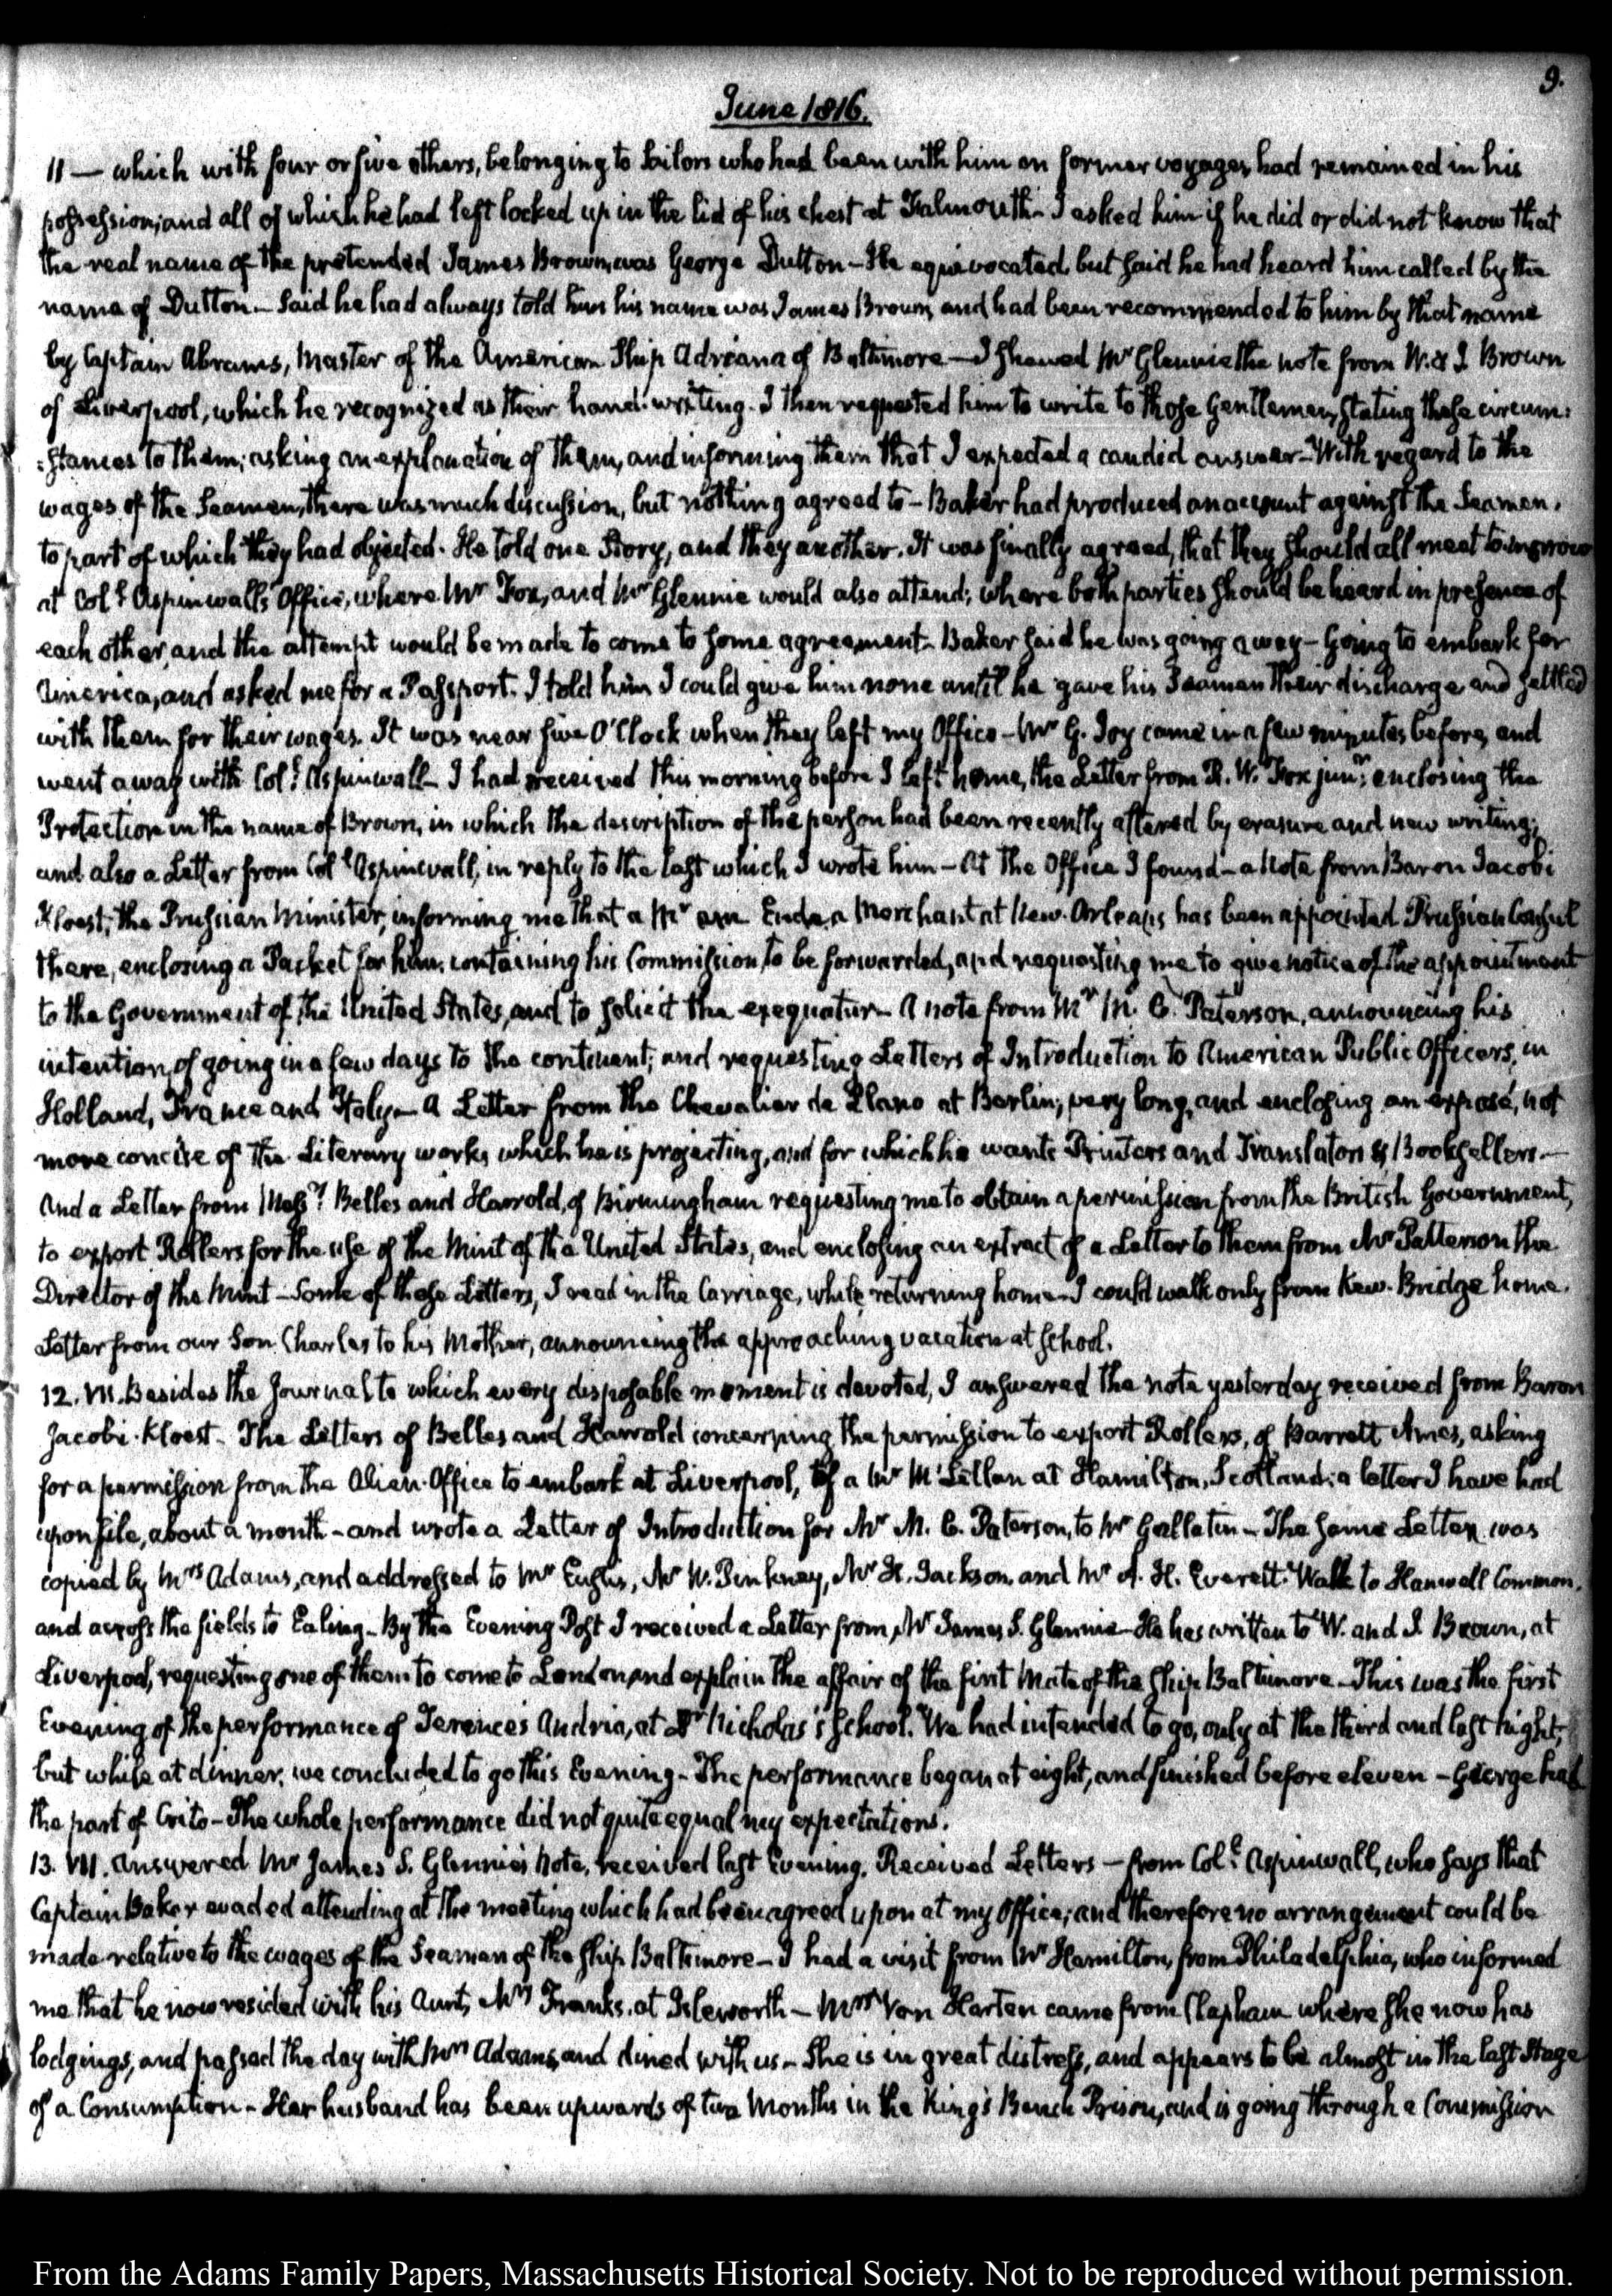 9.
June 1816.
11 — which with four or five others, belonging to Sailors who had been with him on former voyages, had remained in his
possession; and all of which he had left locked up in the lid of his chest at Falmouth — I asked him if he did or did not know that
the real name of the pretended James Brown, was George Dutton — He equivocated, but said he had heard him called by the
name of Dutton — Said he had always told him his name was James Brown, and had been recommended to him by that name
by Captain Abrams, Master of the American Ship Adriana of Baltimore — I shewed Mr Glennie the note from W. & J. Brown
of Liverpool, which he recognized as their hand-writing. I then requested him to write to those Gentlemen, stating these circum:
:stances to them; asking an explanation of them, and informing them that I expected a candid answer — With regard to the
wages of the Seamen, there was much discussion, but nothing agreed to — Baker had produced an account against the Seamen,
to part of which they had objected. He told one Story, and they another. It was finally agreed, that they should all meet to-morrow
at Coll. Aspinwall's Office, where Mr Fox, and Mr Glennie would also attend; where both parties should be heard in presence of
each other, and the attempt would be made to come to some agreement — Baker said he was going away — Going to embark for
America, and asked me for a Passport. I told him I could give him none until he gave his Seamen their discharge and settled
with them for their wages. It was near five O'Clock when they left my Office — Mr G. Joy came in a few minutes before, and
went away with Coll. Aspinwall — I had received this morning before I left home, the Letter from R. W. Fox junr. enclosing the
Protection in the name of Brown, in which the description of the person had been recently altered by erasure and new writing;
and also a Letter from Coll. Aspinwall, in reply to the last which I wrote him — At the Office I found — a Note from Baron Jacobi
Kloest, the Prussian Minister, informing me that a Mr am Ende a Merchant at New-Orleans has been appointed Prussian Consul
there, enclosing a Packet for him, containing his Commission, to be forwarded, and requesting me to give notice of the appointment
to the Government of the United States, and to solicit the exequatur — A note from Mr M. C. Paterson, announcing his
intention, of going in a few days to the continent; and requesting Letters of Introduction to American Public Officers, in
Holland, France and Italy — A Letter from the Chevalier de Llano at Berlin; very long, and enclosing an exposé, not
more concise of the Literary works which he is projecting, and for which he wants Printers and Translators & Booksellers —
And a Letter from Messrs. Belles and Harrold, of Birmingham requesting me to obtain a permission from the British Government,
to export Rollers for the use of the Mint of the United States, and enclosing an extract of a Letter to them from Mr Patterson the
Director of the Mint — Some of these Letters, I read in the Carriage, while returning home — I could walk only from Kew-Bridge home.
Letter from our Son Charles to his Mother, announcing the approaching vacation at School.
12. VII. Besides the Journal to which every disposable moment is devoted, I answered the note yesterday received from Baron
Jacobi-Kloest — The Letters of Belles and Harrold concerning the permission to export Rollers, of Barrett Ames, asking
for a permission from the Alien-Office to embark at Liverpool, of a Mr McLellan at Hamilton, Scotland; a letter I have had
upon file, about a month — and wrote a Letter of Introduction for Mr M. C. Paterson, to Mr Gallatin — The same Letter was
copied by Mrs Adams, and addressed to Mr Eustis, Mr W. Pinkney, Mr H. Jackson, and Mr A. H. Everett. Walk to Hanwell Common,
and across the fields to Ealing — By the Evening Post I received a Letter from Mr James S. Glennie — He has written to W. and J. Brown, at
Liverpool, requesting one of them to come to London and explain the affair of the first Mate of the Ship Baltimore — This was the first
Evening of the performance of Terence's Andria, at Dr Nicholas's School. We had intended to go, only at the third and last night,
but while at dinner, we concluded to go this Evening — The performance began at eight, and finished before eleven — George had
the part of Crito — The whole performance did not quite equal my expectations.
13. VII. Answered Mr James S. Glennie's Note, received last Evening. Received Letters — from Coll. Aspinwall, who says that
Captain Baker evaded attending at the meeting which had been agreed upon at my Office; and therefore no arrangement could be
made relative to the wages of the Seamen of the Ship Baltimore — I had a visit from Mr Hamilton, from Philadelphia, who informed
me that he now resided with his Aunt, Mrs Franks, at Isleworth — Mrs Von Harten came from Clapham where she now has
lodgings, and passed the day with Mrs Adams, and dined with us — She is in great distress, and appears to be almost in the last Stage
of a Consumption — Her husband has been upwards of two Months in the King's Bench Prison, and is going through a Commission
From the Adams Family Papers, Massachusetts Historical Society. Not to be reproduced without permission.